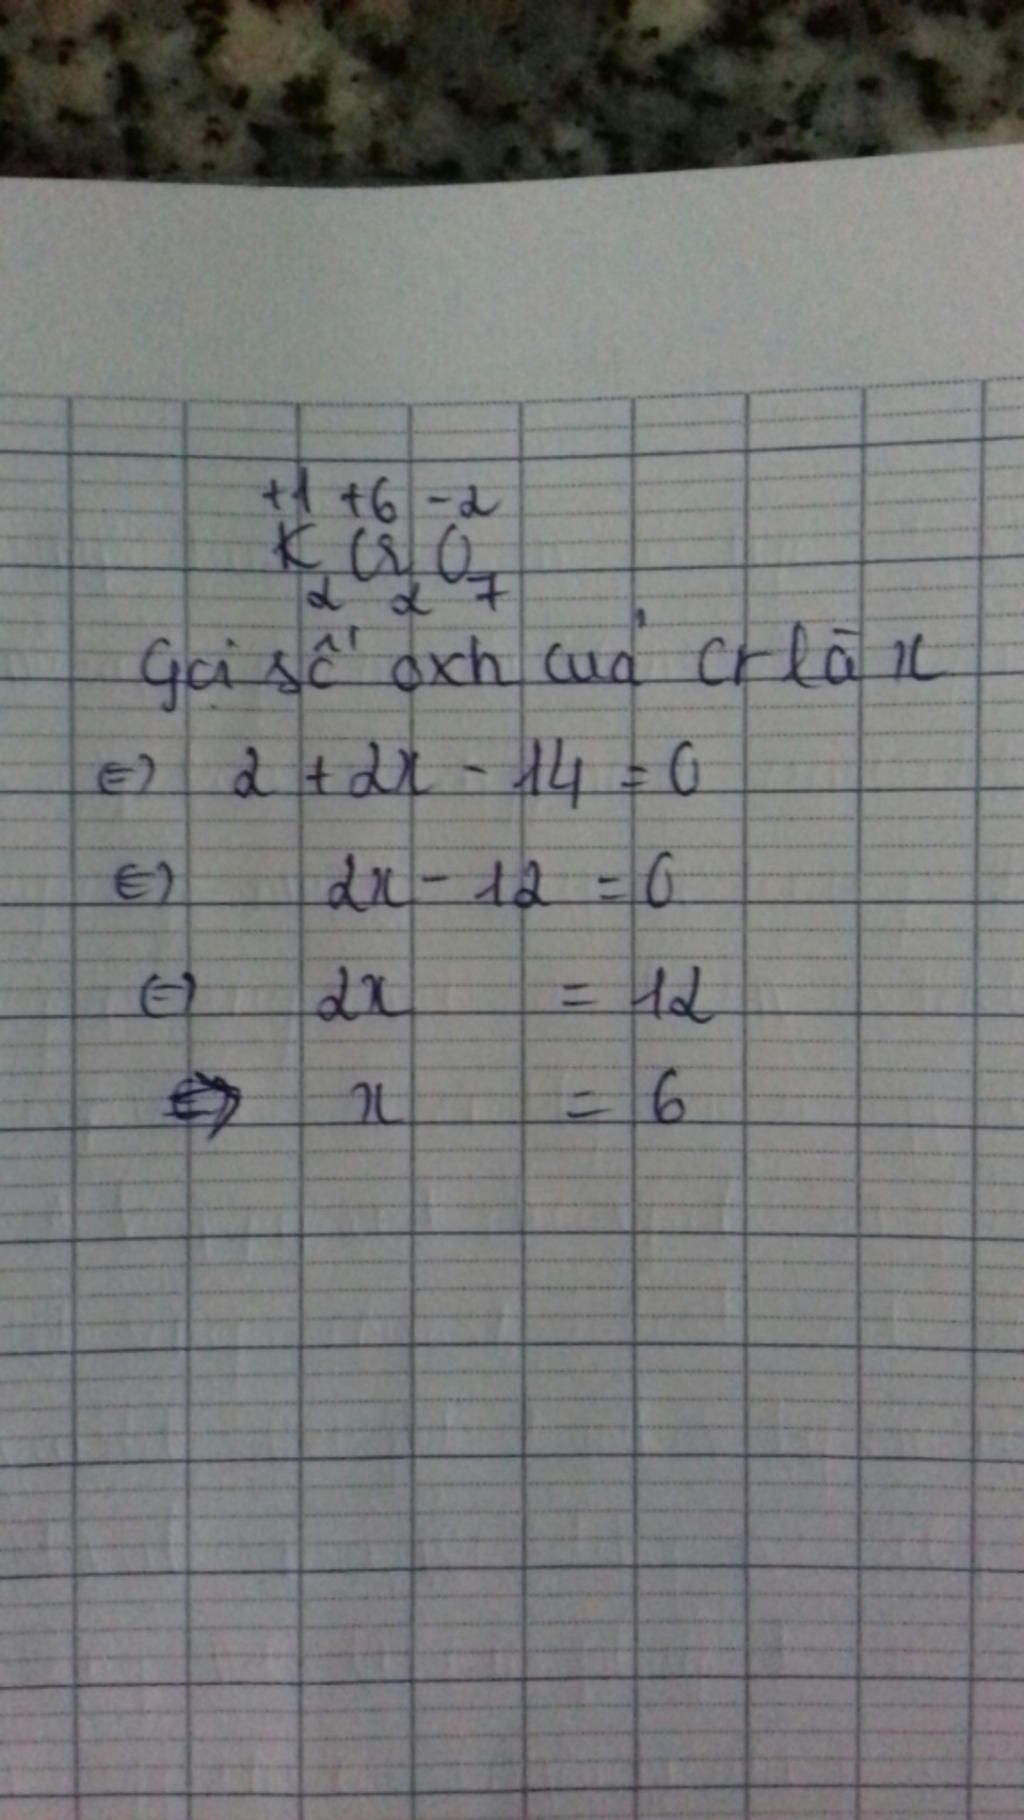 +1 +6 -2
K2 Cr2 O7
Gọi số oxh của Cr là x
⇔ 2 + 2x - 14 = 0
⇔ 2x - 12 = 0
⇔ 2x = 12
⇔ x = 6